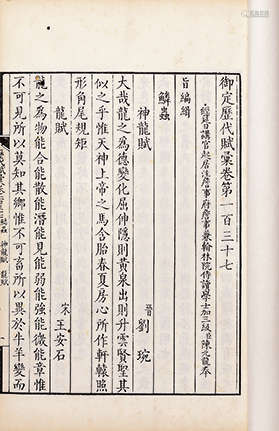 御定歷代賦彙卷第一百三十七
經筵日講官起居注詹事府詹事兼翰林院侍讀學士加三級臣陳元龍奉
旨編緝
鱗蟲
神龍賦
晉劉琬
大哉龍之為德變化屈伸隱則黃泉出則升雲賢聖其
似之乎惟天神上帝之馬含胎春夏房心所作軒轅照
形角尾規矩
龍賦
宋王安石
龍之為物能合能散能潛能見能弱能強能微能章惟
不可見所以莫知其鄉惟不可畜所以異於牛羊變而
神龍賦 龍賦